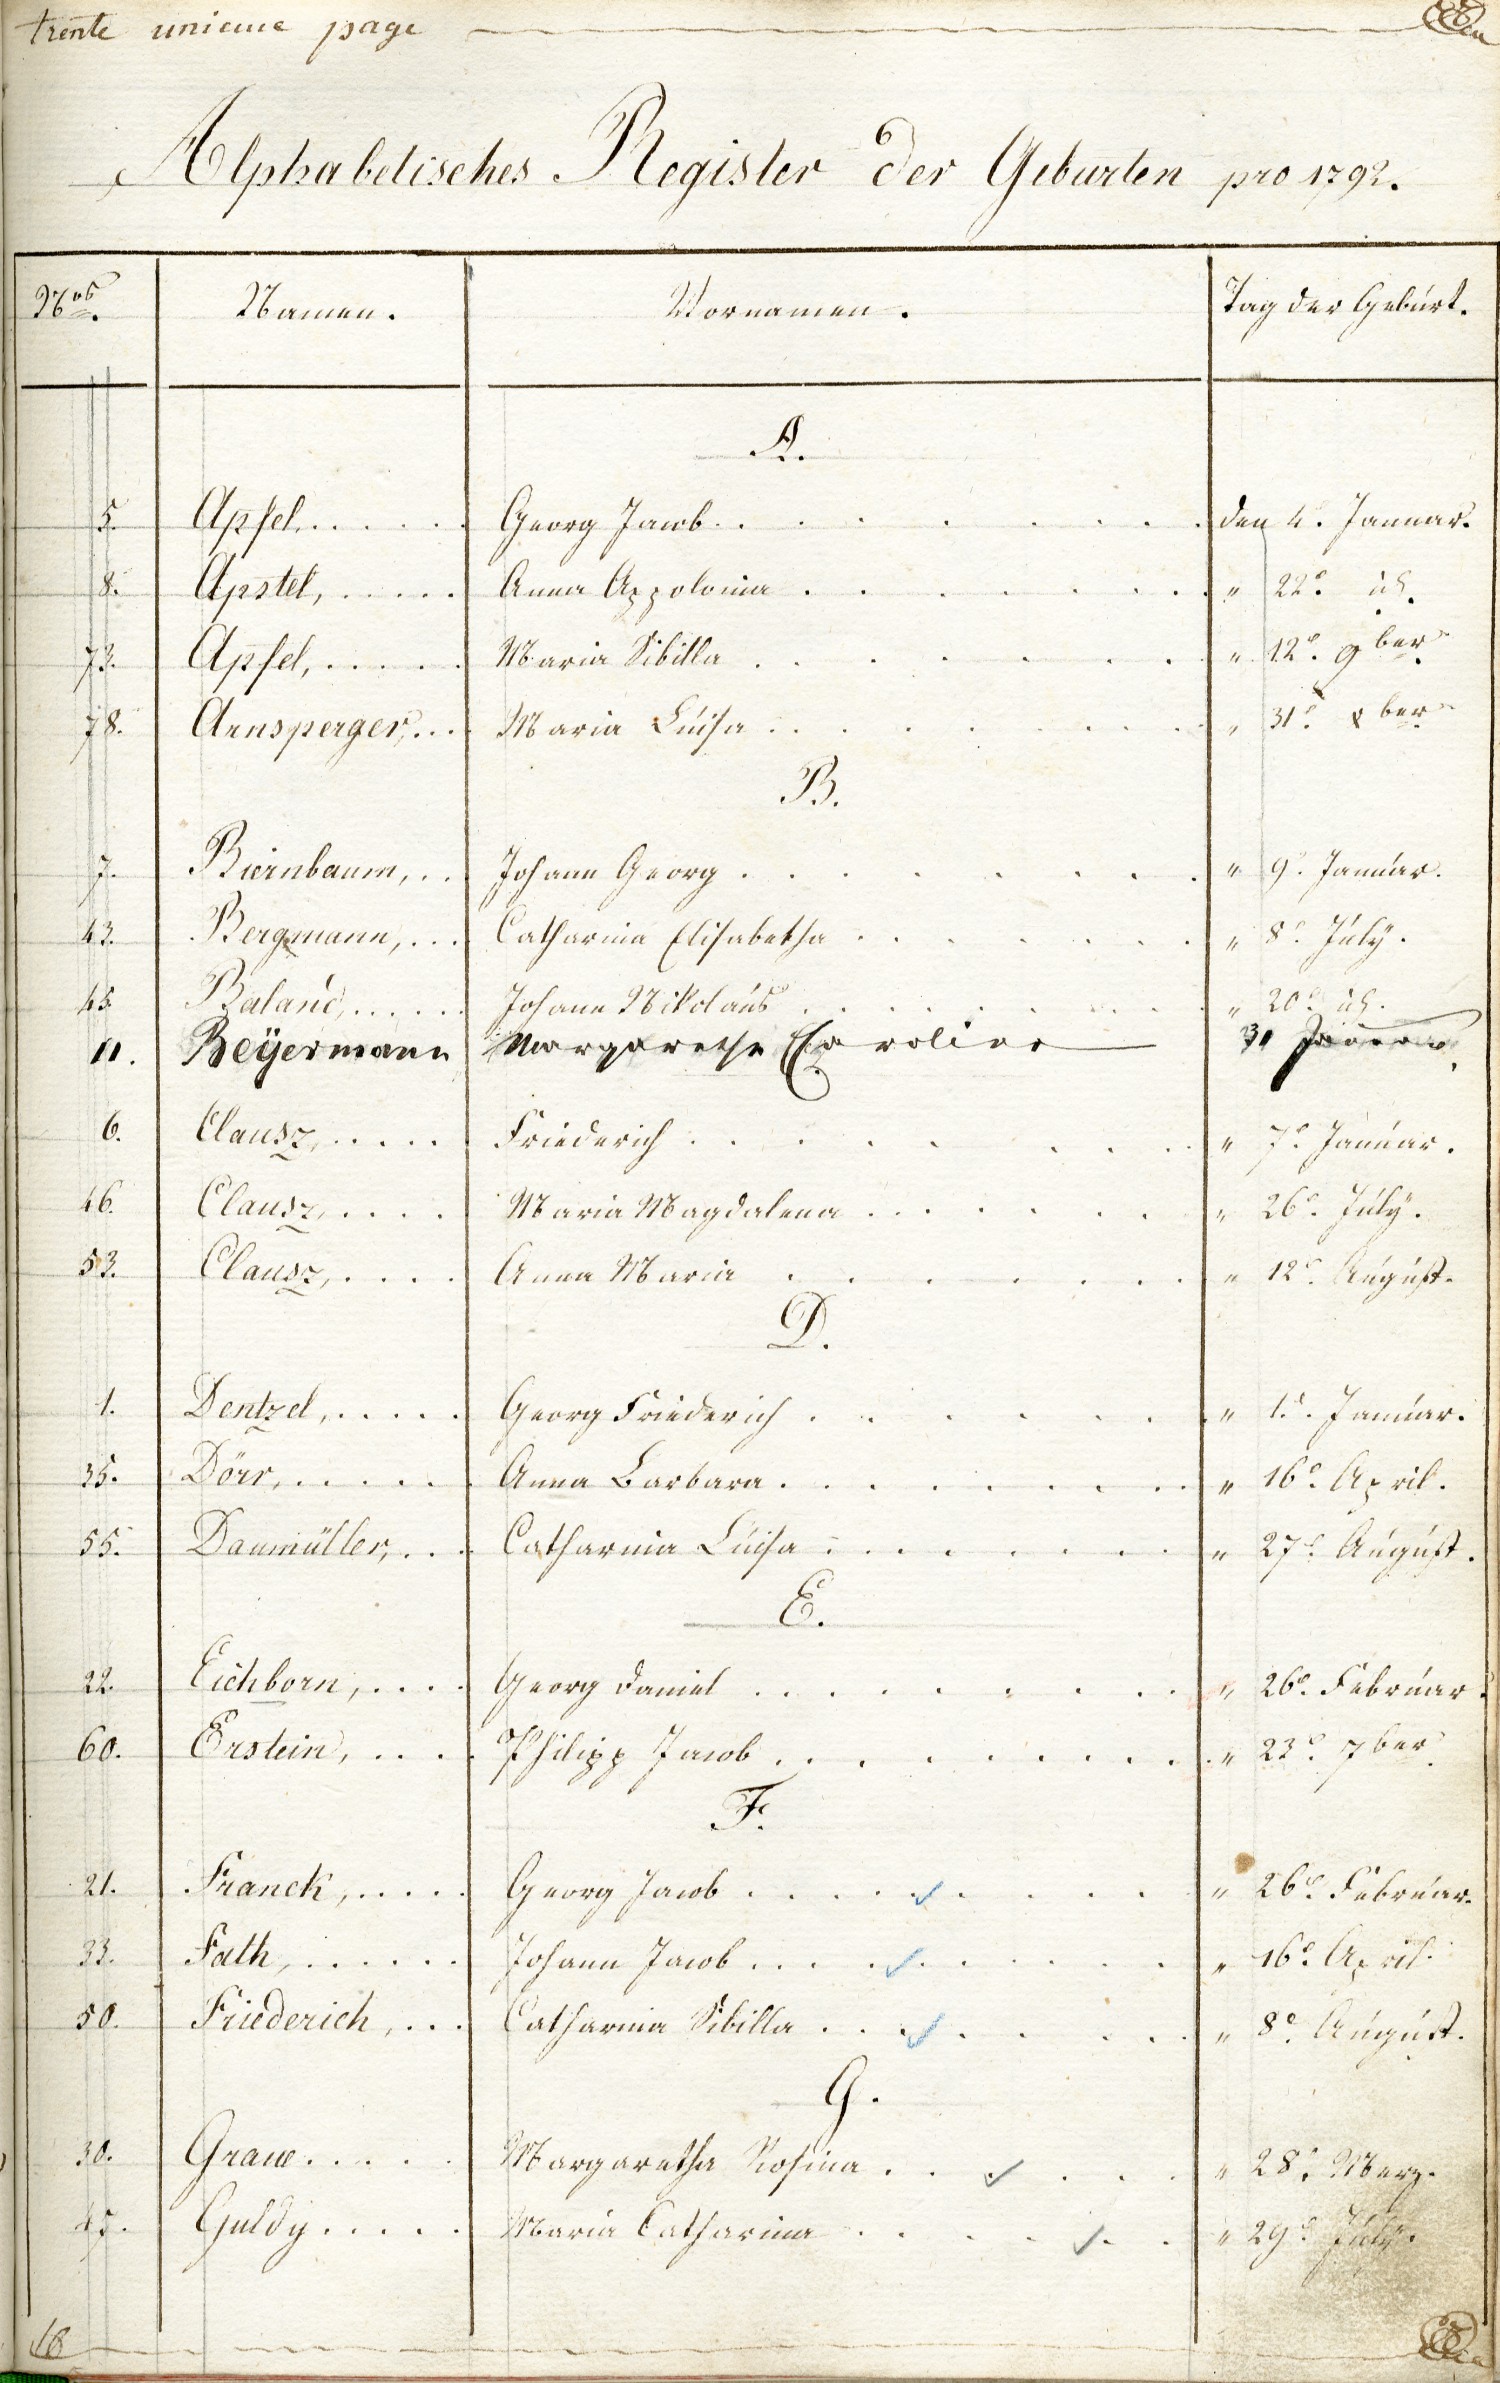 trente unieme page
Alphabetisches Register der Geburten pro 1792.
Nos. Namen. Vornamen. Tag der Geburt.
A.
5. Apfel, Georg Jacob den 4. Januar.
8. Apstel, Anna Appolonia " 22. id.
73. Apfel, Maria Sibilla " 12. 9ber
78. Arnsperger, Maria Luisa " 31. xber
B.
7. Biernbaum, Johann Georg " 9. Januar.
43. Bergmann, Catharina Elisabetha " 8. July.
45. Baland, Johann Nikolaus " 20. id.
11. Beÿermann Margarethe Caroline 31
6. Clausz, Friederich " 7. Januar.
46. Clausz, Maria Magdalena " 26. July.
53. Clausz, Anna Maria " 12. August.
D.
1. Dentzel, Georg Friederich " 1. Januar.
35. Dörr, Anna Barbara " 16. April.
55. Daumüller, Catharina Luisa " 27. August.
E.
22. Eichborn, Georg Daniel " 26. Februar.
60. Erstein, Philipp Jacob " 23. 7ber
F.
21. Franck, Georg Jacob " 26. Februar.
33. Fath, Johann Jacob " 16. April.
50. Friederich, Catharina Sibilla " 8. August.
G.
30. Graue Margaretha Rosina " 28. Merz.
Guldy Maria Catharina " 29. July.
16